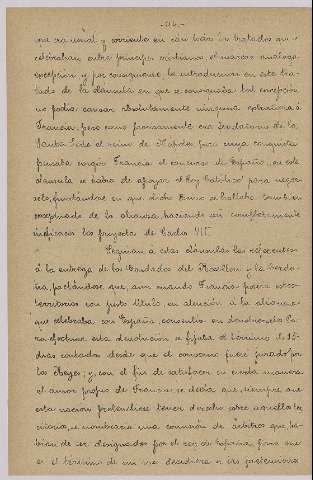 -94-
era racional y corriente en casi todos los tratados que
celebraban entre príncipes cristianos el marcar análoga
excepción y por consiguiente, la introducción en este tra-
tado de la cláusula en que se consignaba tal excepción
no podía causar absolutamente ninguna extrañeza á
Francia, pero como precisamente era feudatario de la
Santa Sede el reino de Nápoles para cuya conquista
pensaba exigir Francia el concurso de España, en esta
cláusula se había de apoyar el Rey Católico para negar-
selo, fundándose en que dicho Reino se hallaba también
exceptuado de la alianza, haciendo así completamente
ineficaces los proyectos de Carlos VIII.
Seguían á estas cláusulas las referentes
á la entrega de los Condados del Rosellón y la Cerda-
ña, pactándose que, aun cuando Francia poseía estos
territorios con justo título, en atención á la alianza
que celebraba con España, consentía en devolvérselos. Pa-
ra efectuar esta devolución se fijaba el término de 15
días contados desde que el convenio fuere firmado por
los Reyes; y, con el fin de satisfacer en cierta manera
el amor propio de Francia, se decía que, siempre que
esta nación pretendiese tener derecho sobre aquellos te-
rritorios, se nombraría una comisión de árbitros que ha-
bían de ser designados por el rey de España para que
en el término de un año decidiera si las pretensiones